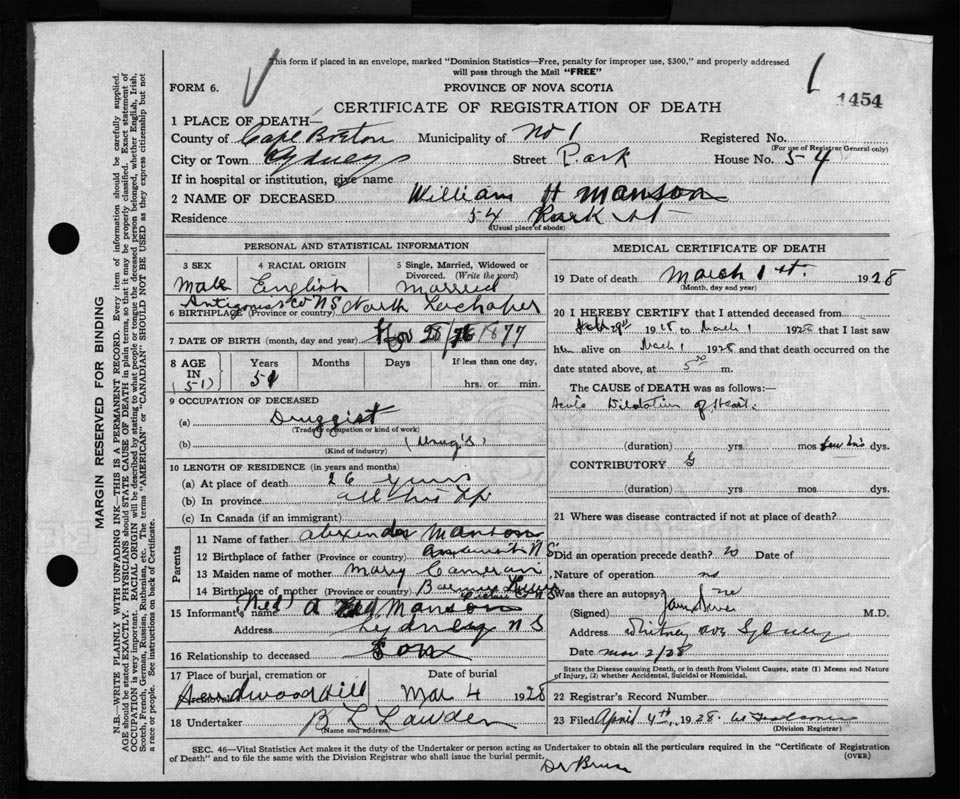 This form if placed in an envelope, marked "Dominion Statistics—Free, penalty for improper use, $300," and properly addressed
will pass through the Mail "FREE"
FORM 6.
PROVINCE OF NOVA SCOTIA
1454
CERTIFICATE OF REGISTRATION OF DEATH
1 PLACE OF DEATH—
County of Cape Breton Municipality of No 1 Registered No.
(For use of Registrar General only)
City or Town Sydney Street Park House No. 54
If in hospital or institution, give name
2 NAME OF DECEASED William H Manson
Residence 54 Park St
(Usual place of abode)
PERSONAL AND STATISTICAL INFORMATION
3 SEX 4 RACIAL ORIGIN 5 Single, Married, Widowed or Divorced. (Write the word)
Male English Married
Antigonish Co NS North
6 BIRTHPLACE (Province or country)
7 DATE OF BIRTH (month, day and year) Nov 28/1877
8 AGE IN Years Months Days If less than one day,
(51) 51 hrs. or min.
9 OCCUPATION OF DECEASED
(a) Druggist
(Trade or occupation or kind of work)
(b) (Drugs)
(Kind of industry)
10 LENGTH OF RESIDENCE (in years and months)
(a) At place of death 26 years
(b) In province all his life
(c) In Canada (if an immigrant)
Parents
11 Name of father Alexander Manson
12 Birthplace of father (Province or country) N S
13 Maiden name of mother Mary Cameron
14 Birthplace of mother (Province or country)
15 Informant's name A Manson
Address Sydney N S
16 Relationship to deceased Son
17 Place of burial, cremation or removal Date of burial
Hardwood Hill Mar 4 1928
18 Undertaker B L
(Name and address)
MEDICAL CERTIFICATE OF DEATH
19 Date of death March 1st. 1928
(Month, day and year)
20 I HEREBY CERTIFY that I attended deceased from
to March 1 1928 that I last saw
him alive on March 1 1928 and that death occurred on the
date stated above, at 5 m.
The CAUSE of DEATH was as follows:—
Acute Dilatation of Heart.
(duration) yrs mos dys.
CONTRIBUTORY
(duration) yrs. mos. dys.
21 Where was disease contracted if not at place of death?
Did an operation precede death? no Date of
Nature of operation no
Was there an autopsy?
(Signed) M.D.
Address Whitney Ave Sydney
Date Mar 2/28
State the Disease causing Death, or in death from Violent Causes, state (1) Means and Nature
of Injury, (2) whether Accidental, Suicidal or Homicidal.
22 Registrar's Record Number
23 Filed April 4th, 1928.
(Division Registrar)
SEC. 46—Vital Statistics Act makes it the duty of the Undertaker or person acting as Undertaker to obtain all the particulars required in the "Certificate of Registration
of Death" and to file the same with the Division Registrar who shall issue the burial permit.
(OVER)
MARGIN RESERVED FOR BINDING
N.B.—WRITE PLAINLY WITH UNFADING INK—THIS IS A PERMANENT RECORD. Every item of information should be carefully supplied.
AGE should be stated EXACTLY. PHYSICIANS should STATE CAUSE OF DEATH in plain terms, so that it may be properly classified. Exact statement of
OCCUPATION is very important. RACIAL ORIGIN will be described by stating to what people or tongue the deceased person belonged, whether English, Irish,
Scotch, French, German, Russian, Ruthenian, etc. The terms "AMERICAN" or "CANADIAN" SHOULD NOT BE USED as they express citizenship but not
a race or people. See instructions on back of Certificate.